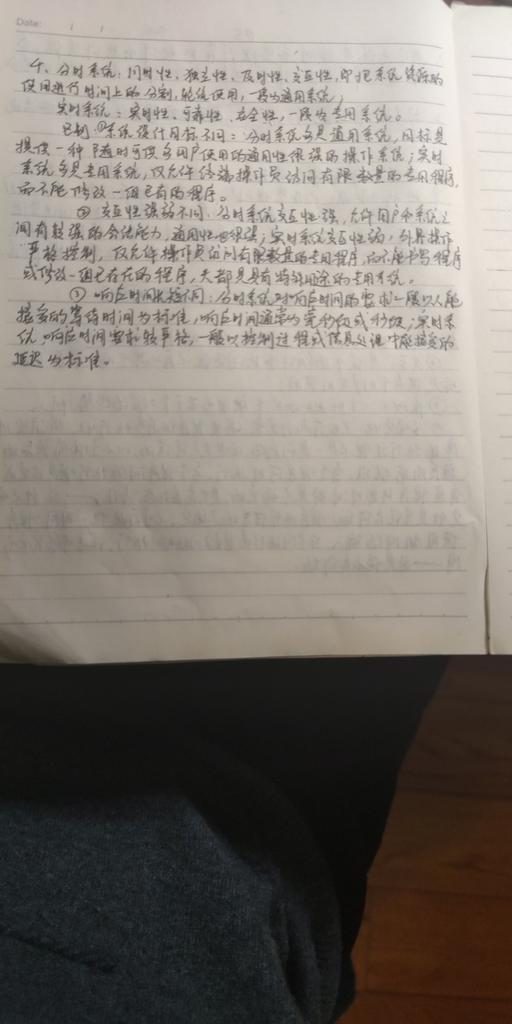 Date:
4、分时系统：同时性、独立性、及时性、交互性，即把系统资源的
使用进行时间上的分割，轮流使用，一般为通用系统；
实时系统：实时性、可靠性、安全性，一般为专用系统。
区别：①系统设计目标不同：分时系统多是通用系统，目标是
提供一种随时可供多用户使用的通用性很强的操作系统；实时
系统多是专用系统，仅允许终端操作员访问有限数量的专用程序，
而不能修改一组已有的程序。
② 交互性强弱不同：分时系统交互性强，允许用户和系统之
间有较强的会话能力，通用性也很强；实时系统交互性弱，外界操作
严格控制，仅允许操作员访问有限数量的专用程序，而不能书写程序
或修改一组已存在的程序，大都是具有特殊用途的专用系统。
③ 响应时间长短不同：分时系统对响应时间的要求一般以人能
接受的等待时间为标准，响应时间通常为毫秒级或秒级；实时系
统响应时间要求较严格，一般以控制过程或信息处理中能接受的
延迟为标准。